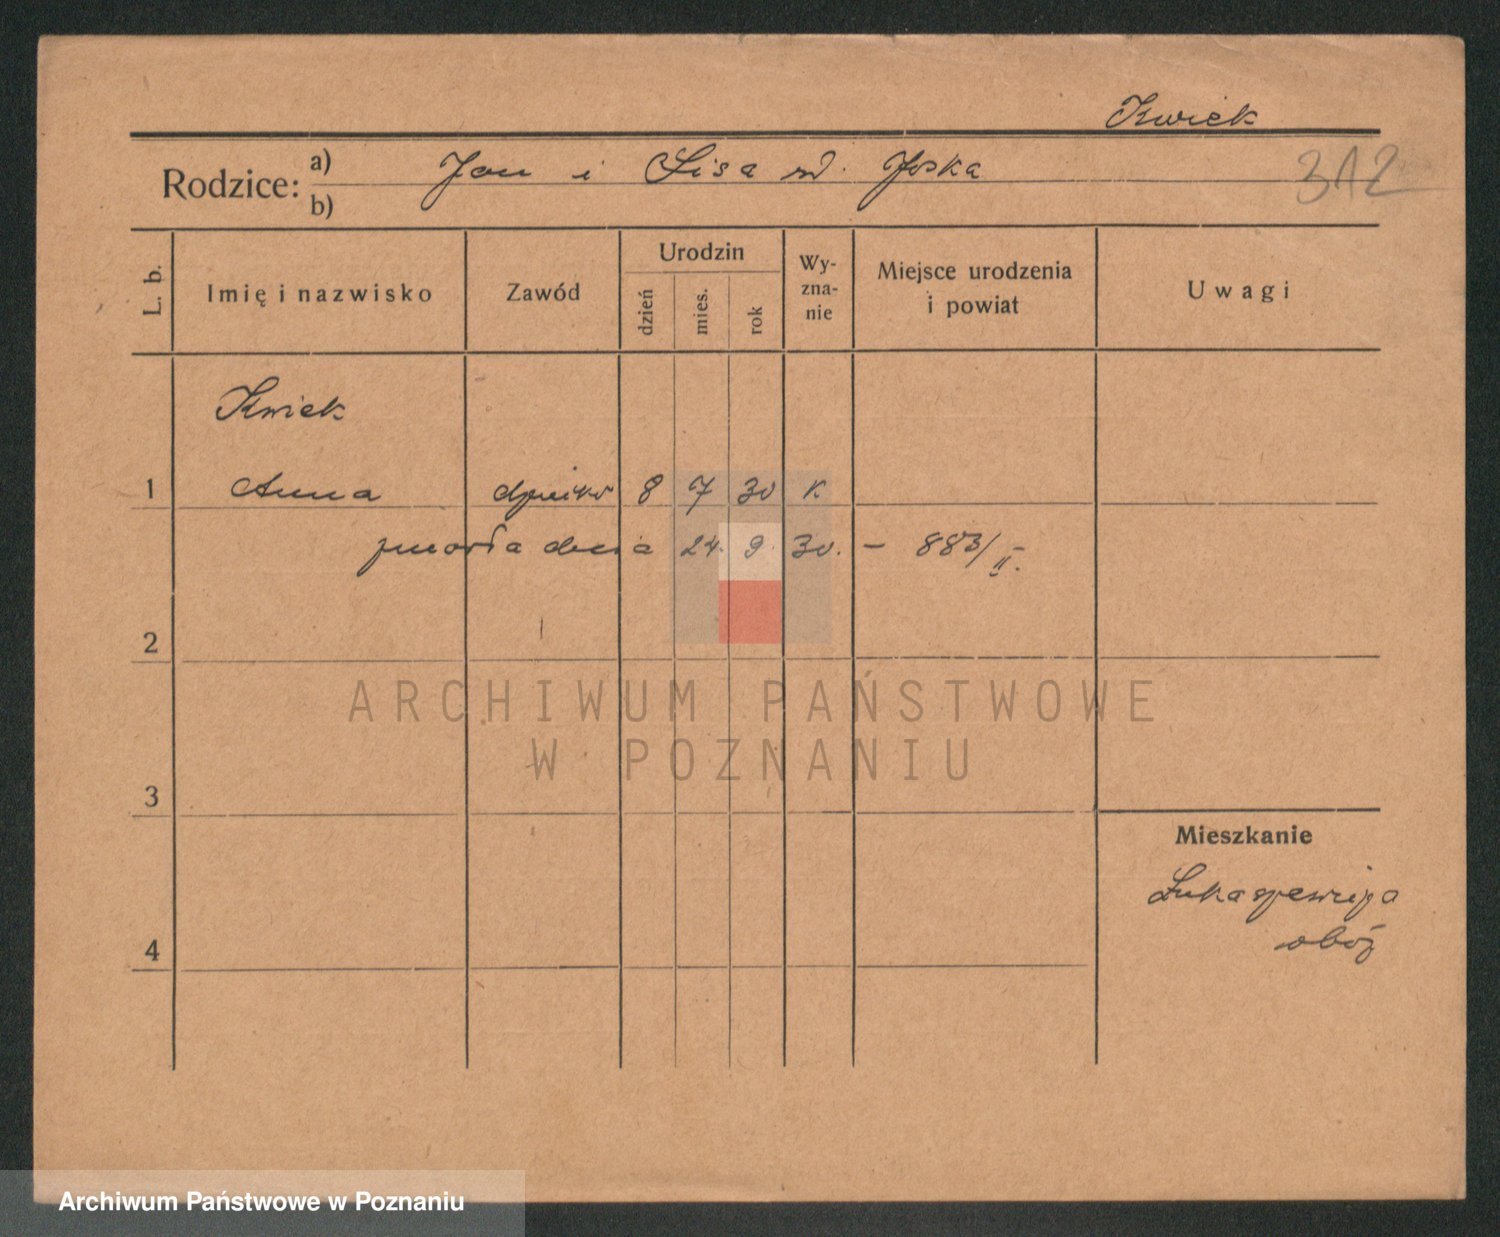 Kwiek
312
Rodzice: a) Jan i Lisa
b)
L. b.
Imię i nazwisko
Zawód
Urodzin
dzień
mies.
rok
Wy-
zna-
nie
Miejsce urodzenia
i powiat
Uwagi
Kwiek
1 Anna 8 7 30 k
zmarła dnia 24. 9. 30. – 883/II.
2
ARCHIWUM PAŃSTWOWE
W POZNANIU
3
Mieszkanie
obóz
4
Archiwum Państwowe w Poznaniu